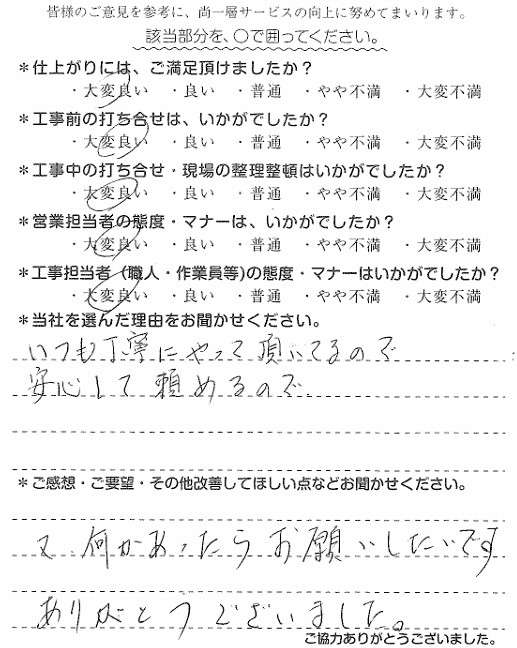 皆様のご意見を参考に、尚一層サービスの向上に努めてまいります。
該当部分を、○で囲ってください。
＊仕上がりには、ご満足頂けましたか？
・大変良い ・良い ・普通 ・やや不満 ・大変不満
＊工事前の打ち合せは、いかがでしたか？
・大変良い ・良い ・普通 ・やや不満 ・大変不満
＊工事中の打ち合せ・現場の整理整頓はいかがでしたか？
・大変良い ・良い ・普通 ・やや不満 ・大変不満
＊営業担当者の態度・マナーは、いかがでしたか？
・大変良い ・良い ・普通 ・やや不満 ・大変不満
＊工事担当者（職人・作業員等)の態度・マナーはいかがでしたか？
・大変良い ・良い ・普通 ・やや不満 ・大変不満
＊当社を選んだ理由をお聞かせください。
いつも丁寧にやって頂いてるので
安心して頼めるので
＊ご感想・ご要望・その他改善してほしい点などお聞かせください。
又何かあったらお願いしたいです
ありがとうございました。
ご協力ありがとうございました。